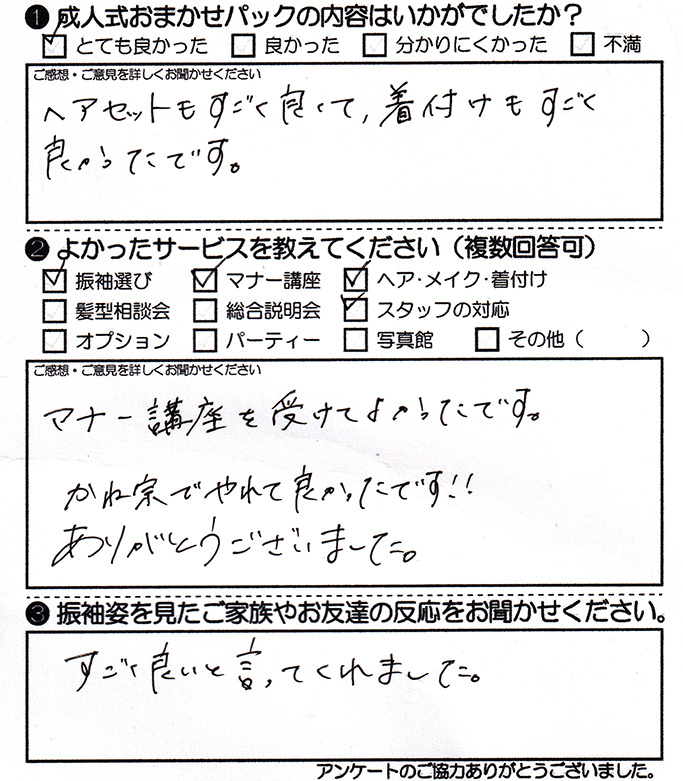 ❶ 成人式おまかせパックの内容はいかがでしたか？
☑ とても良かった □ 良かった □ 分かりにくかった □ 不満
ご感想・ご意見を詳しくお聞かせください
ヘアセットもすごく良くて，着付けもすごく
良かったです。
❷ よかったサービスを教えてください（複数回答可）
☑ 振袖選び ☑ マナー講座 ☑ ヘア・メイク・着付け
□ 髪型相談会 □ 総合説明会 ☑ スタッフの対応
□ オプション □ パーティー □ 写真館 □ その他（ ）
ご感想・ご意見を詳しくお聞かせください
マナー講座を受けてよかったです。
かね宗でやれて良かったです!!
ありがとうございました。
❸ 振袖姿を見たご家族やお友達の反応をお聞かせください。
すごく良いと言ってくれました。
アンケートのご協力ありがとうございました。